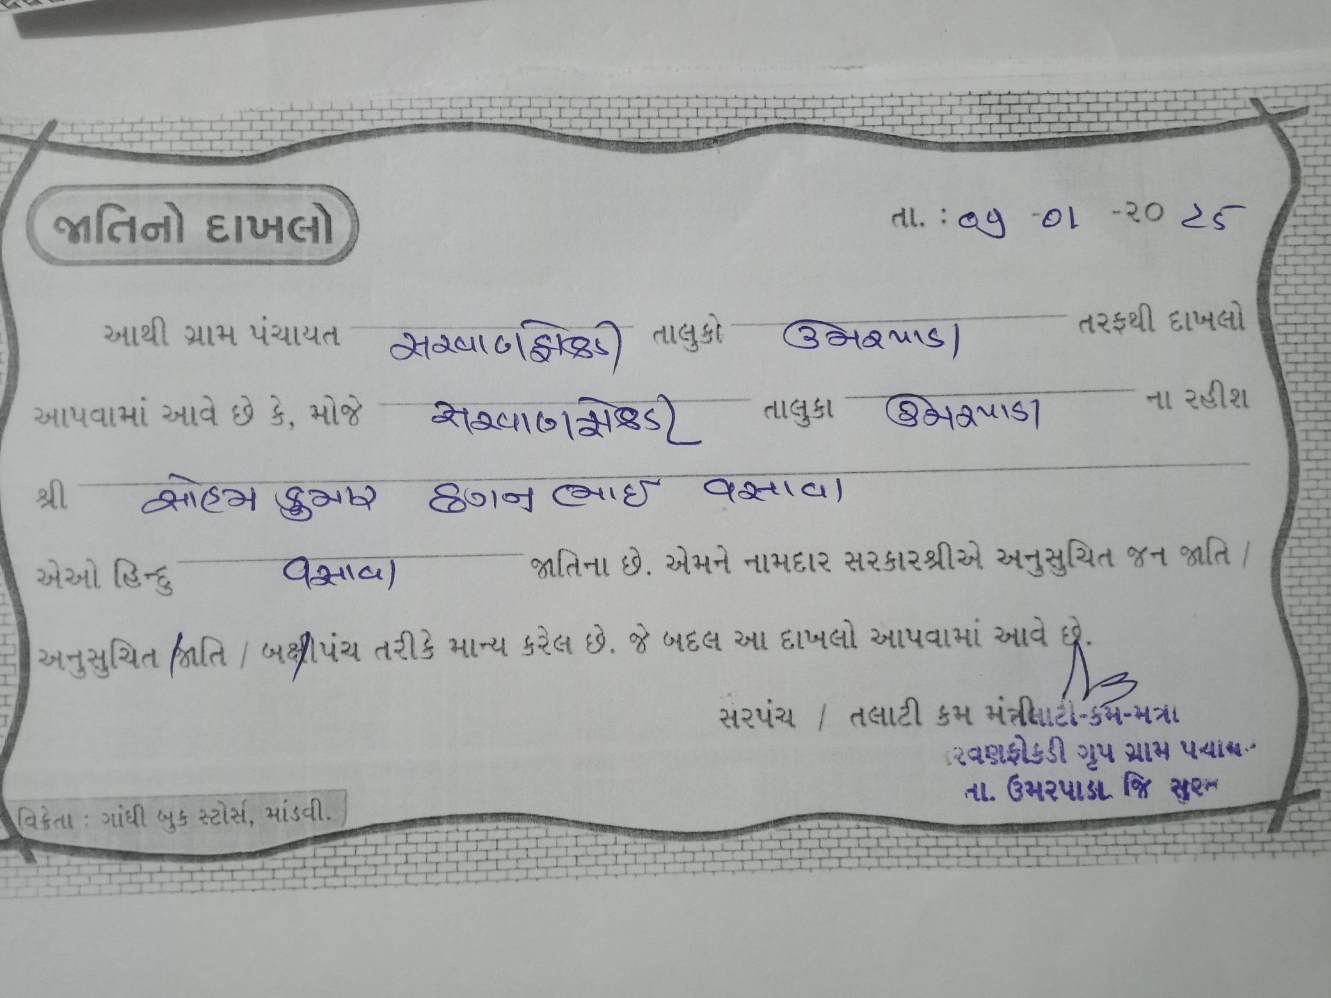 જાતિનો દાખલો
તા. : ૦૧ -૨૦ ૨૫
આથી ગ્રામ પંચાયત સરવાણફોકડી તાલુકો ઉમરપાડા તરફથી દાખલો
આપવામાં આવે છે કે, મોજે સરવાણફોકડી તાલુકા ઉમરપાડા ના રહીશ
શ્રી સોહમ કુમાર છગન ભાઈ વસાવા
એઓ હિન્દુ વસાવા જાતિના છે. એમને નામદાર સરકારશ્રીએ અનુસુચિત જન જાતિ /
અનુસુચિત જાતિ / બક્ષીપંચ તરીકે માન્ય કરેલ છે. જે બદલ આ દાખલો આપવામાં આવે છે.
સરપંચ / તલાટી કમ મંત્રી
રવણફોકડી ગૃપ ગ્રામ
તા. ઉમરપાડા જિ સુરત
વિક્રેતા : ગાંધી બુક સ્ટોર્સ, માંડવી.